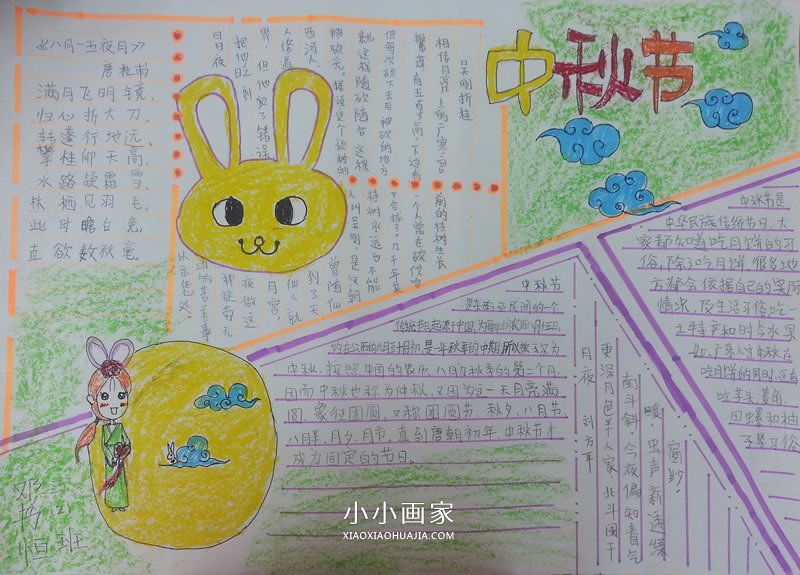 中秋节
《八月一五夜月》
唐 杜甫
满月飞明镜，
归心折大刀。
转蓬行地远，
攀桂仰天高。
水路疑霜雪，
林栖见羽毛。
此时瞻白兔，
直欲数秋毫。
吴刚折桂
相传月亮上的广寒宫
前的桂树生长
繁茂，有五百多高，下边有
一个人常在砍伐它
但每次砍下去后，被砍的地方
又合拢了，几千年来
就这样随砍随合，这棵
桂树永远也不能
被砍光。据说这个砍树的
人叫吴刚，是汉朝
西河人，
曾随仙
人修道，
到了天
界，但他犯了错误，
仙人就
把他贬到
月宫，
日日夜
夜做这
种徒劳无
功的苦差事
以示惩处
中秋节
是东南亚民间的一个
中秋，按照中国的农历，八月为秋季的第二个月，
因而中秋也称为仲秋，又因为这一天月亮满
圆，象征团圆，又称团圆节，秋夕、八月节、
八月半、月夕、月节，直到唐朝初年，中秋节才
成为固定的节日。
中秋节是
中华民族传统节日，大
家都知道吃月饼的习
俗，除了吃月饼，很多地
方都会依据自己的实际
情况，及生活习俗吃一
土特产和时令水果
如，广东人过中秋在
吃月饼的同时，还有
吃芋头、菱角、
田螺和柚
子等习俗
月夜 刘方平
更深月色半人家，北斗阑干
南斗斜，今夜偏知春气
暖，虫声新透绿
窗纱。
邓书恒
三(2)班
小小画家
XIAOXIAOHUAJIA.COM